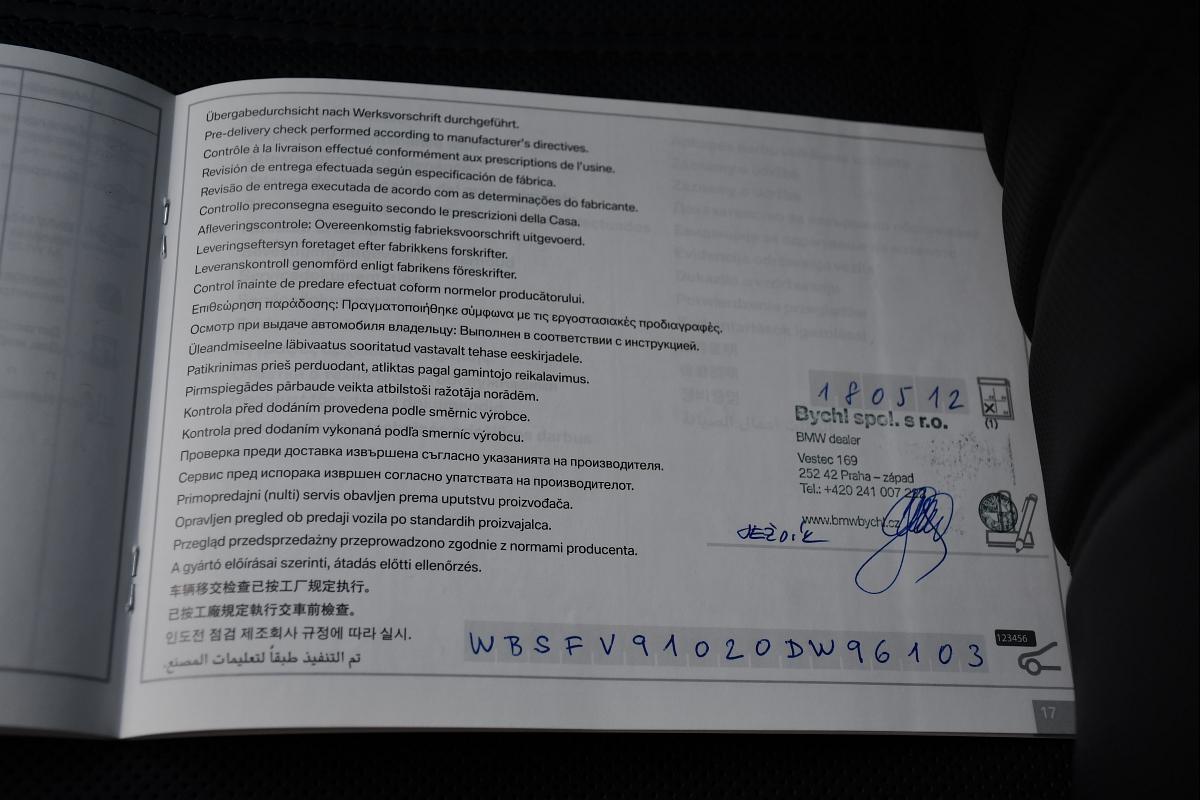 Übergabedurchsicht nach Werksvorschrift durchgeführt.
Pre-delivery check performed according to manufacturer's directives.
Contrôle à la livraison effectué conformément aux prescriptions de l'usine.
Revisión de entrega efectuada según especificación de fábrica.
Revisão de entrega executada de acordo com as determinações do fabricante.
Controllo preconsegna eseguito secondo le prescrizioni della Casa.
Afleveringscontrole: Overeenkomstig fabrieksvoorschrift uitgevoerd.
Leveringseftersyn foretaget efter fabrikkens forskrifter.
Leveranskontroll genomförd enligt fabrikens föreskrifter.
Control înainte de predare efectuat coform normelor producătorului.
Επιθεώρηση παράδοσης: Πραγματοποιήθηκε σύμφωνα με τις εργοστασιακές προδιαγραφές.
Осмотр при выдаче автомобиля владельцу: Выполнен в соответствии с инструкцией.
Üleandmiseelne läbivaatus sooritatud vastavalt tehase eeskirjadele.
Patikrinimas prieš perduodant, atliktas pagal gamintojo reikalavimus.
Pirmspiegādes pārbaude veikta atbilstoši ražotāja norādēm.
Kontrola před dodáním provedena podle směrnic výrobce.
Kontrola pred dodaním vykonaná podľa smerníc výrobcu.
Проверка преди доставка извършена съгласно указанията на производителя.
Сервис пред испорака извршен согласно упатствата на производителот.
Primopredajni (nulti) servis obavljen prema uputstvu proizvođača.
Opravljen pregled ob predaji vozila po standardih proizvajalca.
Przegląd przedsprzedażny przeprowadzono zgodnie z normami producenta.
A gyártó előírásai szerinti, átadás előtti ellenőrzés.
车辆移交检查已按工厂规定执行。
已按工廠規定執行交車前檢查。
인도전 점검 제조회사 규정에 따라 실시.
تم التنفيذ طبقاً لتعليمات المصنع.
180512
(1)
Bychl spol. s r.o.
BMW dealer
Vestec 169
252 42 Praha – západ
Tel.: +420 241 007
www.bmwbychl.cz
WBSFV91020DW96103
123456
17